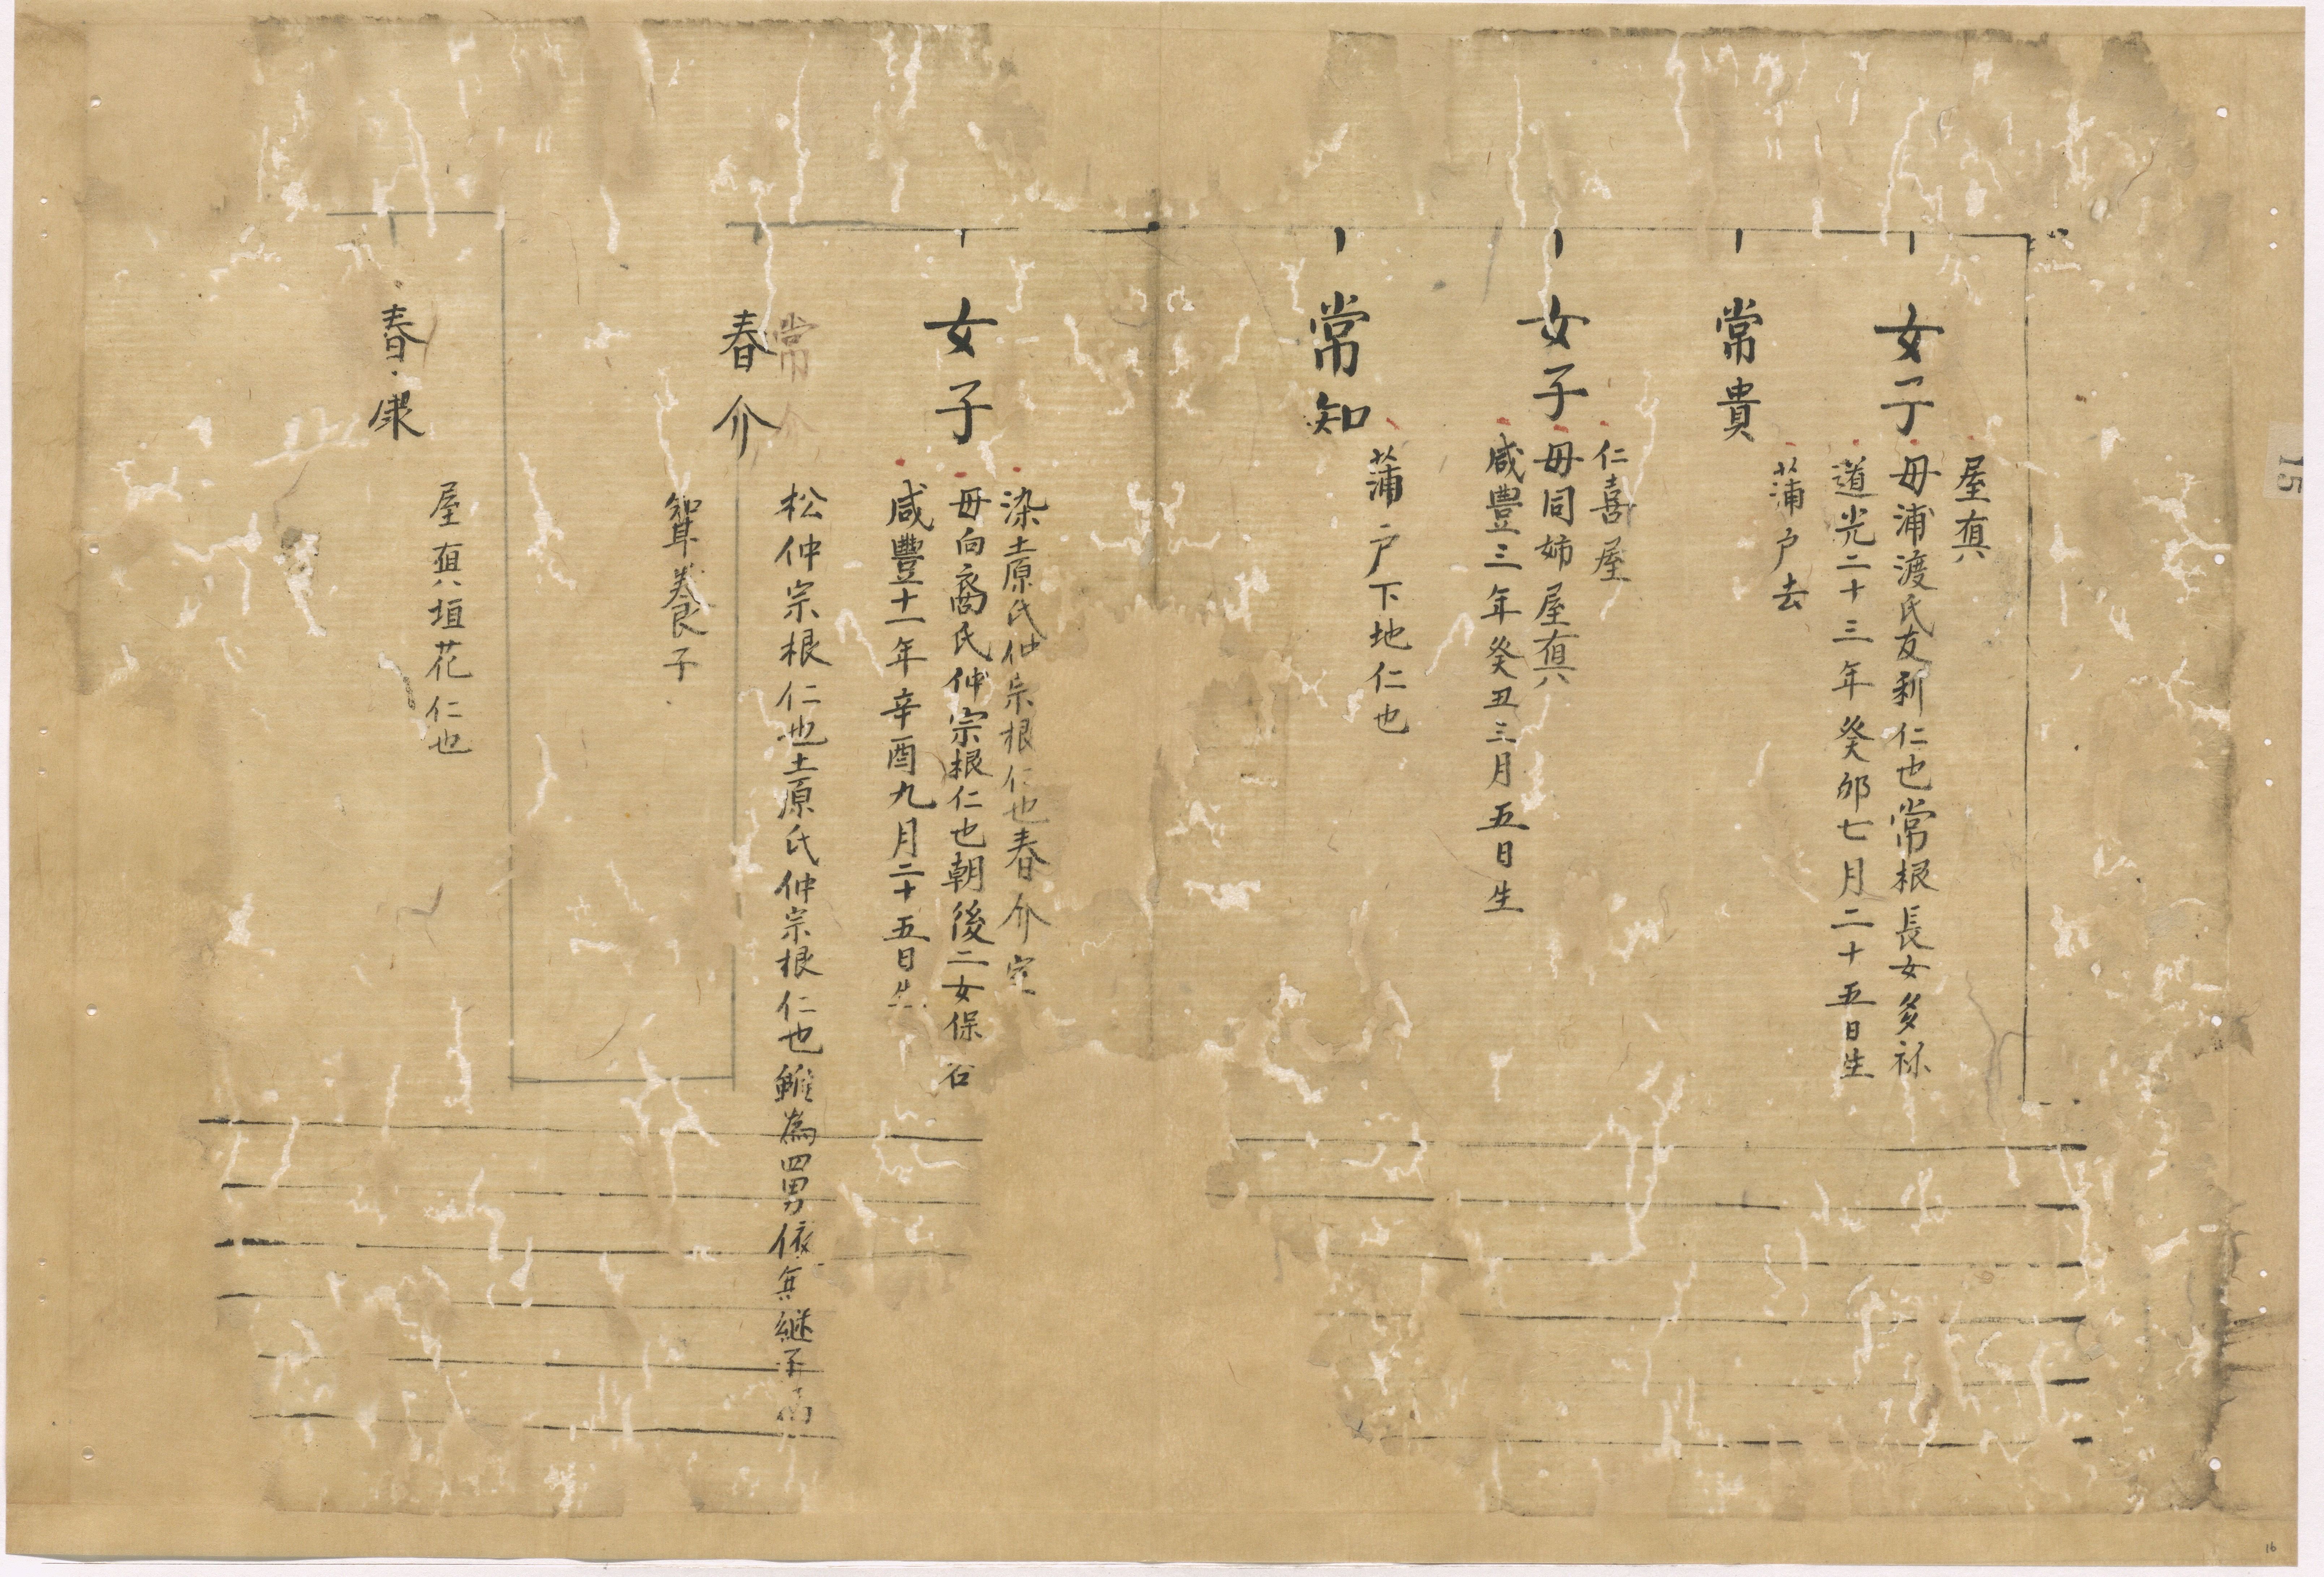 15
屋真
女子
母浦渡氏友利仁也常根長女多祢
道光二十三年癸卯七月二十五日生
常貴
蒲戸去
仁喜屋
女子
母同姉屋真
咸豐三年癸丑三月五日生
常知
蒲戸下地仁也
染土原氏仲宗根仁也春介室
女子
母向裔氏仲宗根仁也朝後二女保石
咸豐十一年辛酉九月二十五日生
常介
春介
松仲宗根仁也土原氏仲宗根仁也雖為四男依無継子為
聟養子
春康
屋真垣花仁也
16